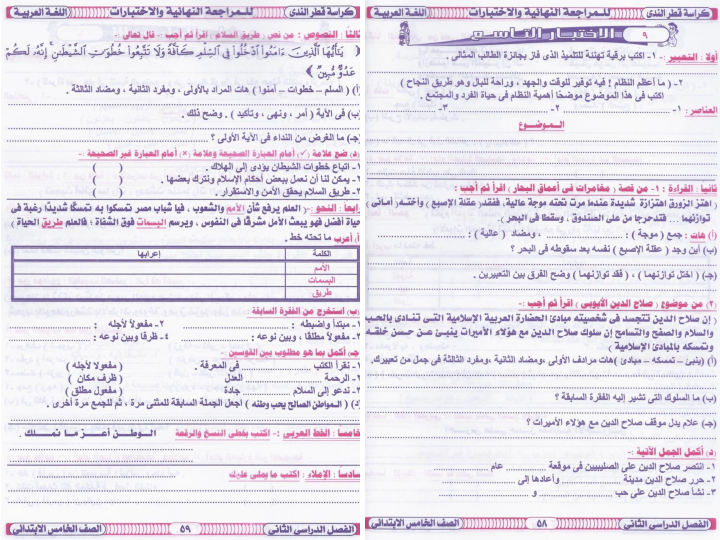 كراسة قطر الندى
للمراجعة النهائية والاختبارات
اللغة العربية
٩
الاختبار التاسع
أولا : التعبير :- ١- اكتب برقية تهنئة للتلميذ الذى فاز بجائزة الطالب المثالى .
٢- ( ما أعظم النظام ! فيه توفير للوقت والجهد ، وراحة للبال وهو طريق النجاح )
اكتب فى هذا الموضوع موضحًا أهمية النظام فى حياة الفرد والمجتمع .
العناصر : ١- ٢- ٣-
الموضوع
ثانيا : القراءة : ١- من قصة : مغامرات فى أعماق البحار : اقرأ ثم أجب :
( اهتز الزورق اهتزازة شديدة عندما مرت تحته موجة عالية، ففقد عقلة الإصبع ، وأختـه ، أمـانى ،
توازنهما ... فتدحرجا من على الصندوق ، وسقطا فى البحر ) .
(أ) هات : جمع ( موجة ) : ، ومضاد ( عالية ) :
(ب) أين وجد ( عقلة الإصبع ) نفسه بعد سقوطه فى البحر ؟
(جـ) ( اختل توازنهما ) ، ( فقد توازنهما ) وضح الفرق بين التعبيرين .
(٢) من موضوع ( صلاح الدين الأيوبى ) اقرأ ثم أجب :-
( إن صلاح الدين تتجسد فى شخصيته مبادئ الحضارة العربية الإسلامية التـى تنـادى بالحب
والسلام والصفح والتسامح إن سلوك صلاح الدين مع هؤلاء الأميرات ينبـئ عـن حـسن خلقـه
وتمسكه بالمبادئ الإسلامية )
(أ) (ينبئ – تمسكه – مبادئ )هات مرادف الأولى ،ومضاد الثانية ،ومفرد الثالثة فى جمل من تعبيرك.
(ب) ما السلوك التى تشير إليه الفقرة السابقة ؟
(جـ) علام يدل موقف صلاح الدين مع هؤلاء الأميرات ؟
(د) أكمل الجمل الآتية :-
١- انتصر صلاح الدين على الصليبيين فى موقعة عام
٢- حرر صلاح الدين مدينة وأعادها إلى
٣- نشأ صلاح الدين على حب و
الفصل الدراسى الثانى
٥٨
الصف الخامس الابتدائى
كراسة قطر الندى
للمراجعة النهائية والاختبارات
اللغة العربية
ثالثا : النصوص : من نص : طريق السلام : اقرأ ثم أجب :- قال تعالى :-
﴿ يَٰٓأَيُّهَا ٱلَّذِينَ ءَامَنُوا۟ ٱدْخُلُوا۟ فِى ٱلسِّلْمِ كَآفَّةً وَلَا تَتَّبِعُوا۟ خُطُوَٰتِ ٱلشَّيْطَٰنِ إِنَّهُۥ لَكُمْ
عَدُوٌّ مُّبِينٌ ﴾
(أ) ( السلم – خطوات – آمنوا ) هات المراد بالأولى ، ومفرد الثانية ، ومضاد الثالثة .
(ب) فى الآية ( أمر ، ونهى ، وتأكيد ) . وضح ذلك .
(جـ) ما الغرض من النداء فى الآية الأولى ؟
(د) ضع علامة (✓) أمام العبارة الصحيحة وعلامة (×) أمام العبارة غير الصحيحة :-
١- اتباع خطوات الشيطان يؤدى إلى الهلاك . ( )
٢- يمكن لنا أن نعمل ببعض أحكام الإسلام ونترك بعضها . ( )
٣- طريق السلام يحقق الأمن والاستقرار . ( )
رابعاً : النحو :- ( العلم يرفع شأن الأمم والشعوب ، فيا شباب مصر تمسكوا به تمسكًا شديدًا رغبة فى
حياة أفضل فهو يبعث الأمل مشرقًا فى النفوس ، ويرسم البسمات فوق الشفاة ؛ فالعلم طريق الحياة )
(أ) أعرب ما تحته خط .
الكلمة إعرابها
الأمم
البسمات
طريق
(ب) استخرج من الفقرة السابقة
١- مبتدأ واضبطه : ٢- مفعولاً لأجله :
٣- مفعولاً مطلقًا ، وبين نوعه : ٤- ظرفًا وبين نوعه :
(جـ) أكمل بما هو مطلوب بين القوسين :-
١- نقرأ الكتب فى المعرفة . ( مفعولا لأجله )
٢- الرحمة العدل ( ظرف مكان )
٣- ندعو إلى السلام جادة ( مفعول مطلق )
(د) ( المواطن الصالح يحب وطنه ) أجعل الجملة السابقة للمثنى مرة ، ثم للجمع مرة أخرى .
خامسا : الخط العربى :- اكتب بخطى النسخ والرقعة الـوطـن أعــز مـا نمــلك .
سادساً : الإملاء : اكتب ما يملى عليك
الفصل الدراسى الثانى
٥٩
الصف الخامس الابتدائى